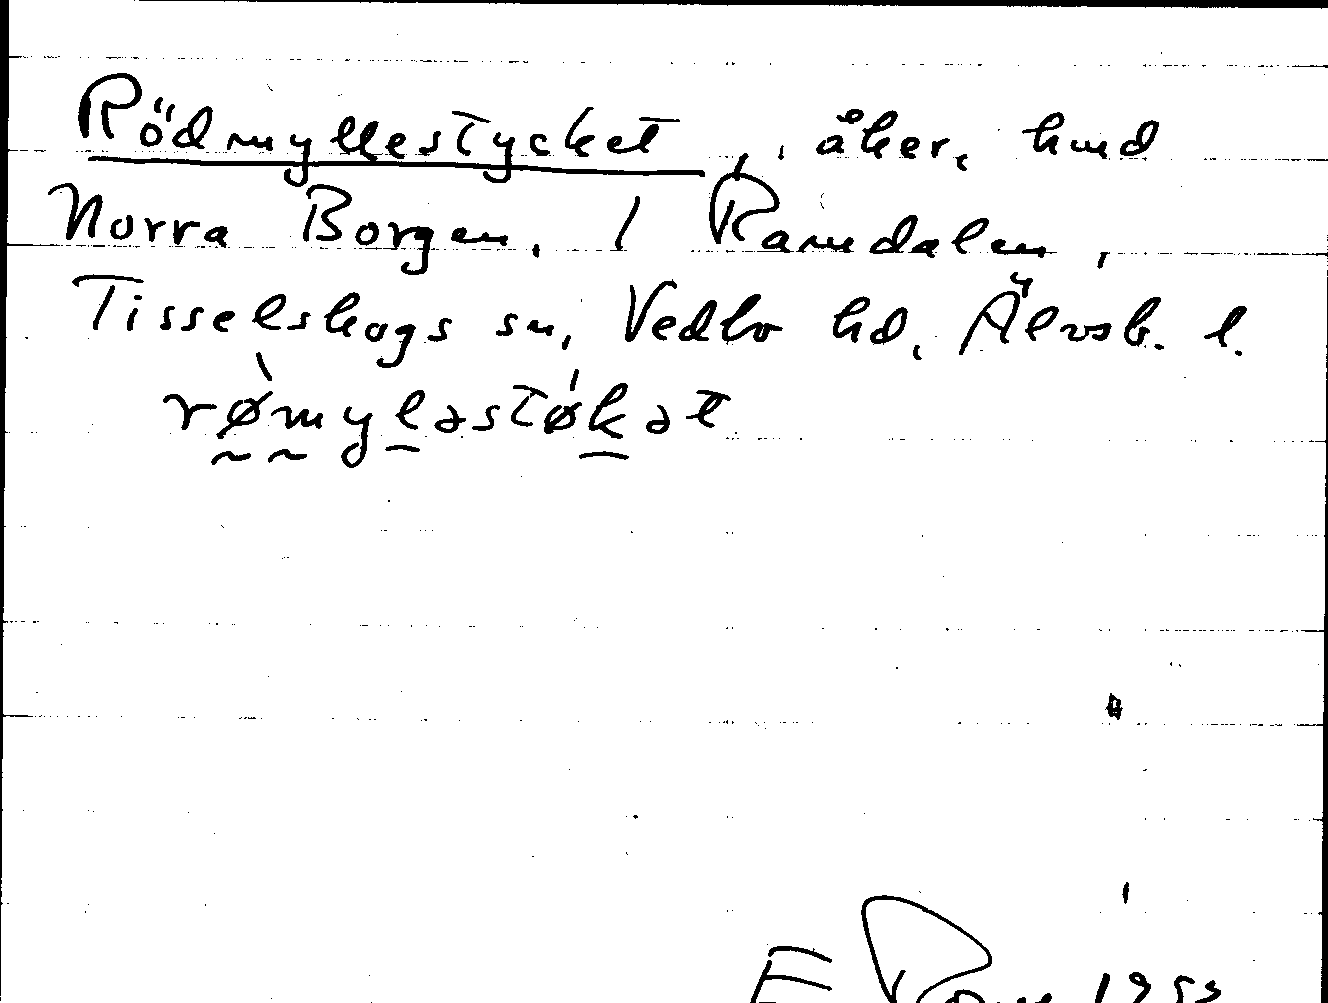 Rödmyllestycket, åker, hmd
Norra Borgen, 1 Ramdalen,
Tisselskogs sn, Vedbo hd, Älvsb. l.
rø̀myləstǿkət
E